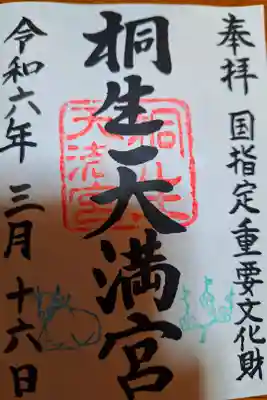 奉拝 国指定重要文化財
桐生天満宮
令和六年 三月 十六日